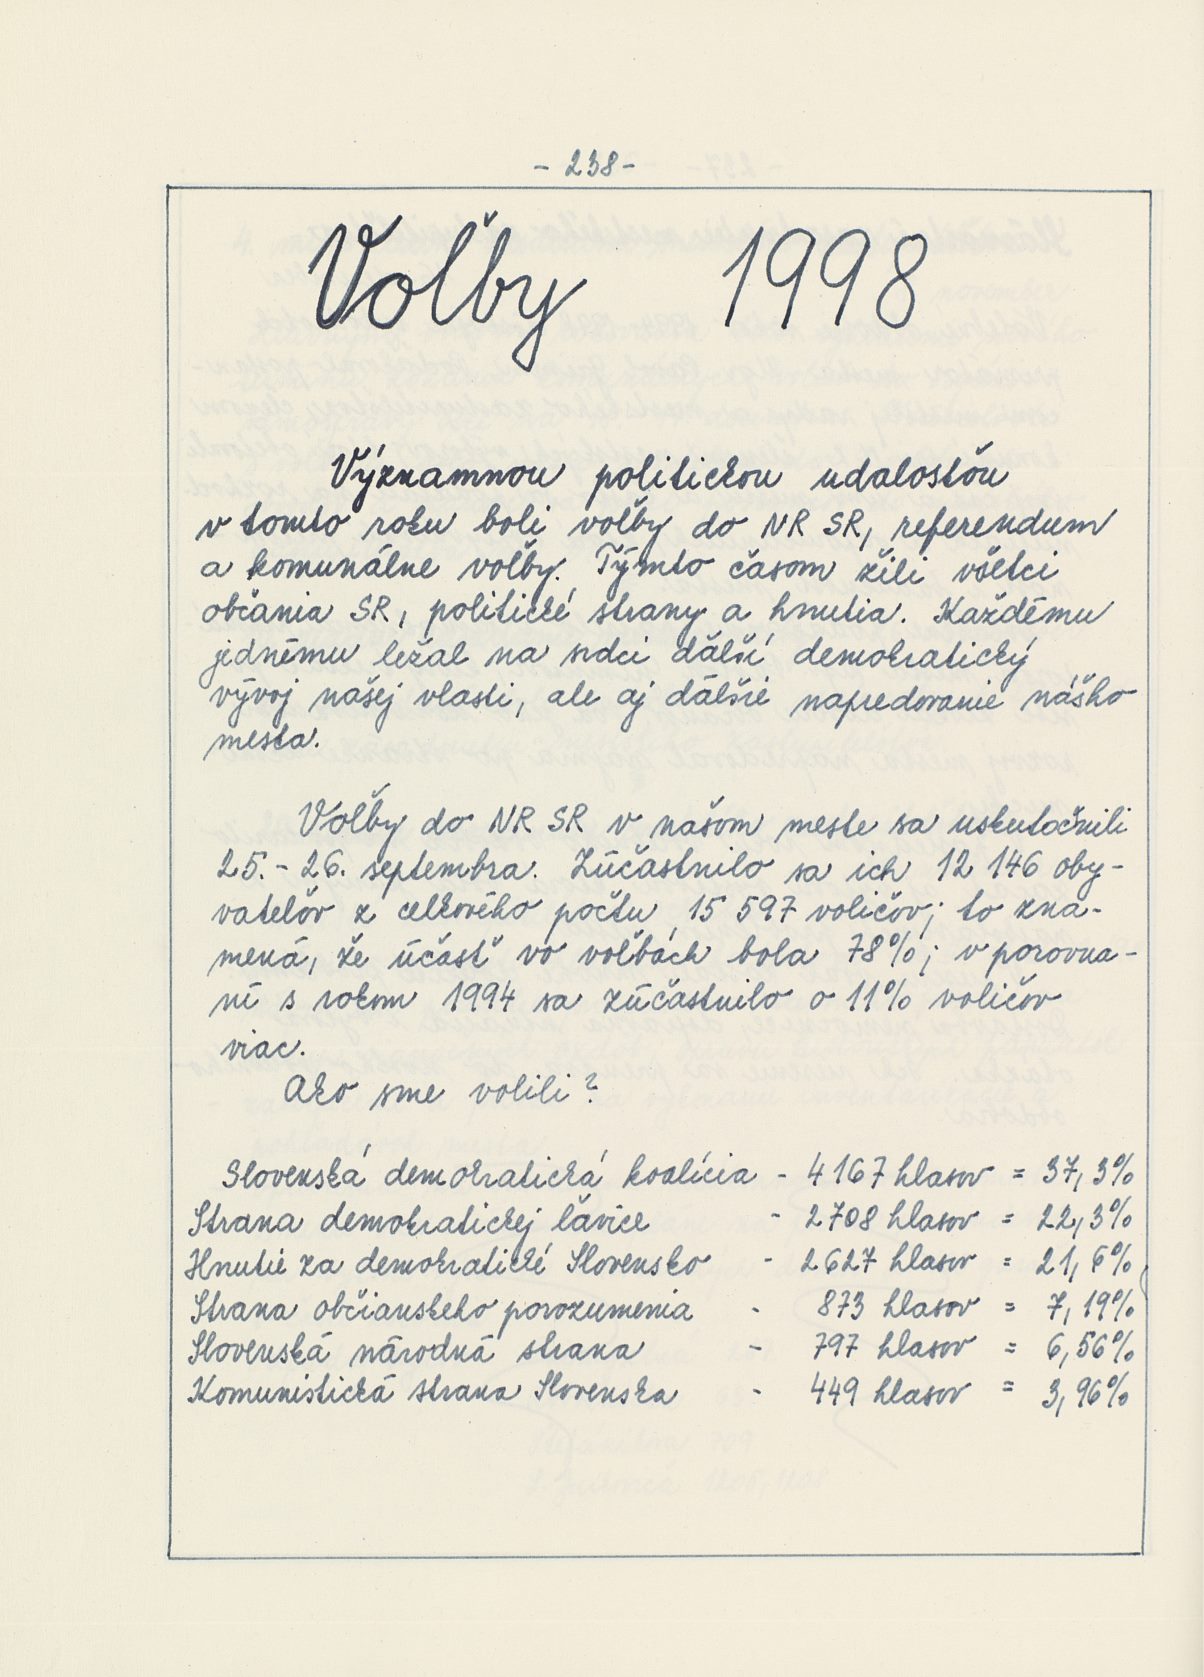 - 238 -
Voľby 1998
Významnou politickou udalosťou
v tomto roku boli voľby do NR SR, referendum
a komunálne voľby. Týmto časom žili všetci
občania SR, politické strany a hnutia. Každému
jednému ležal na srdci ďalší demokratický
vývoj našej vlasti, ale aj ďalšie napredovanie nášho
mesta.
Voľby do NR SR v našom meste sa uskutočnili
25. - 26. septembra. Zúčastnilo sa ich 12 146 oby-
vateľov z celkového počtu 15 597 voličov; to zna-
mená, že účasť vo voľbách bola 78%; v porovna-
ní s rokom 1994 sa zúčastnilo o 11% voličov
viac.
Ako sme volili?
Slovenská demokratická koalícia - 4 167 hlasov = 37,3%
Strana demokratickej ľavice - 2 708 hlasov = 22,3%
Hnutie za demokratické Slovensko - 2 627 hlasov = 21,6%
Strana občianskeho porozumenia - 873 hlasov = 7,19%
Slovenská národná strana - 797 hlasov = 6,56%
Komunistická strana Slovenska - 449 hlasov = 3,96%